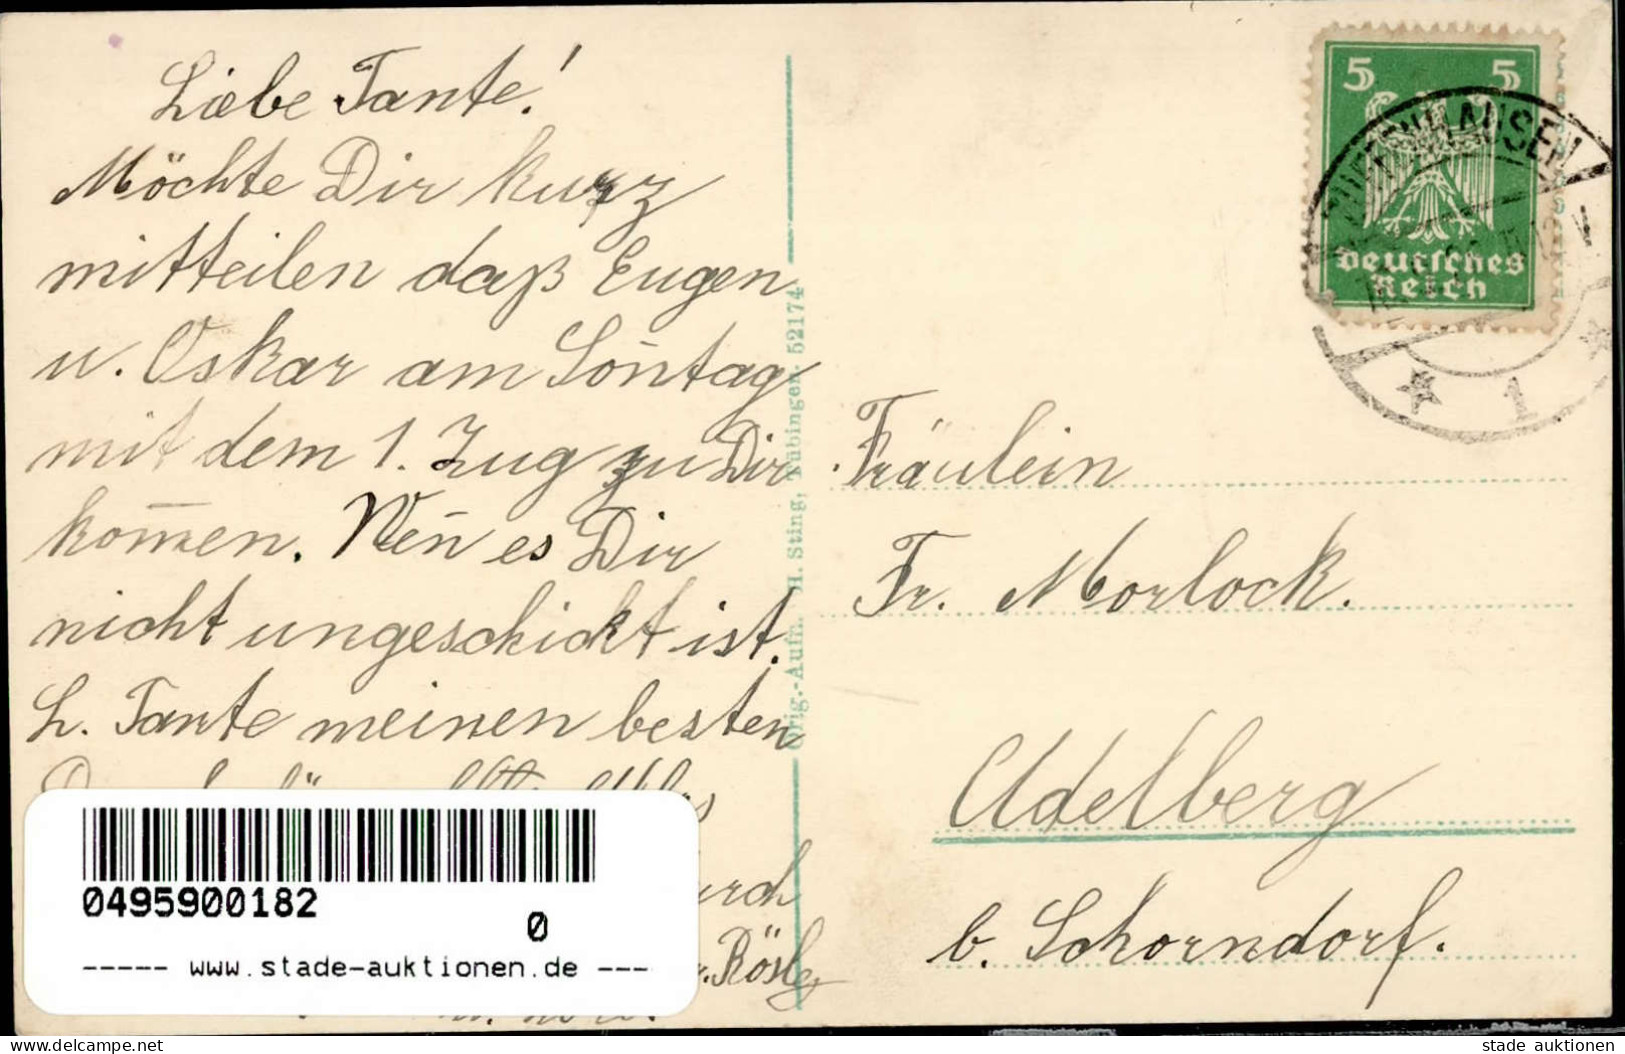 Liebe Tante!
Möchte Dir kurz
mitteilen daß Eugen
u. Oskar am Soñtag
mit dem 1. Zug zu Dir
kom̄en. Weñ es Dir
nicht ungeschickt ist.
L. Tante meinen besten
durch
Rösle
Orig.-Aufn. H. Sting, Tübingen 52174
5 5
Deutsches
Reich
ZUFFENHAUSEN
* 1 *
Fräulein
Fr. Morlock.
Adelberg
b. Schorndorf.
0495900182
0
----- www.stade-auktionen.de ---
www.delcampe.net
stade auktionen